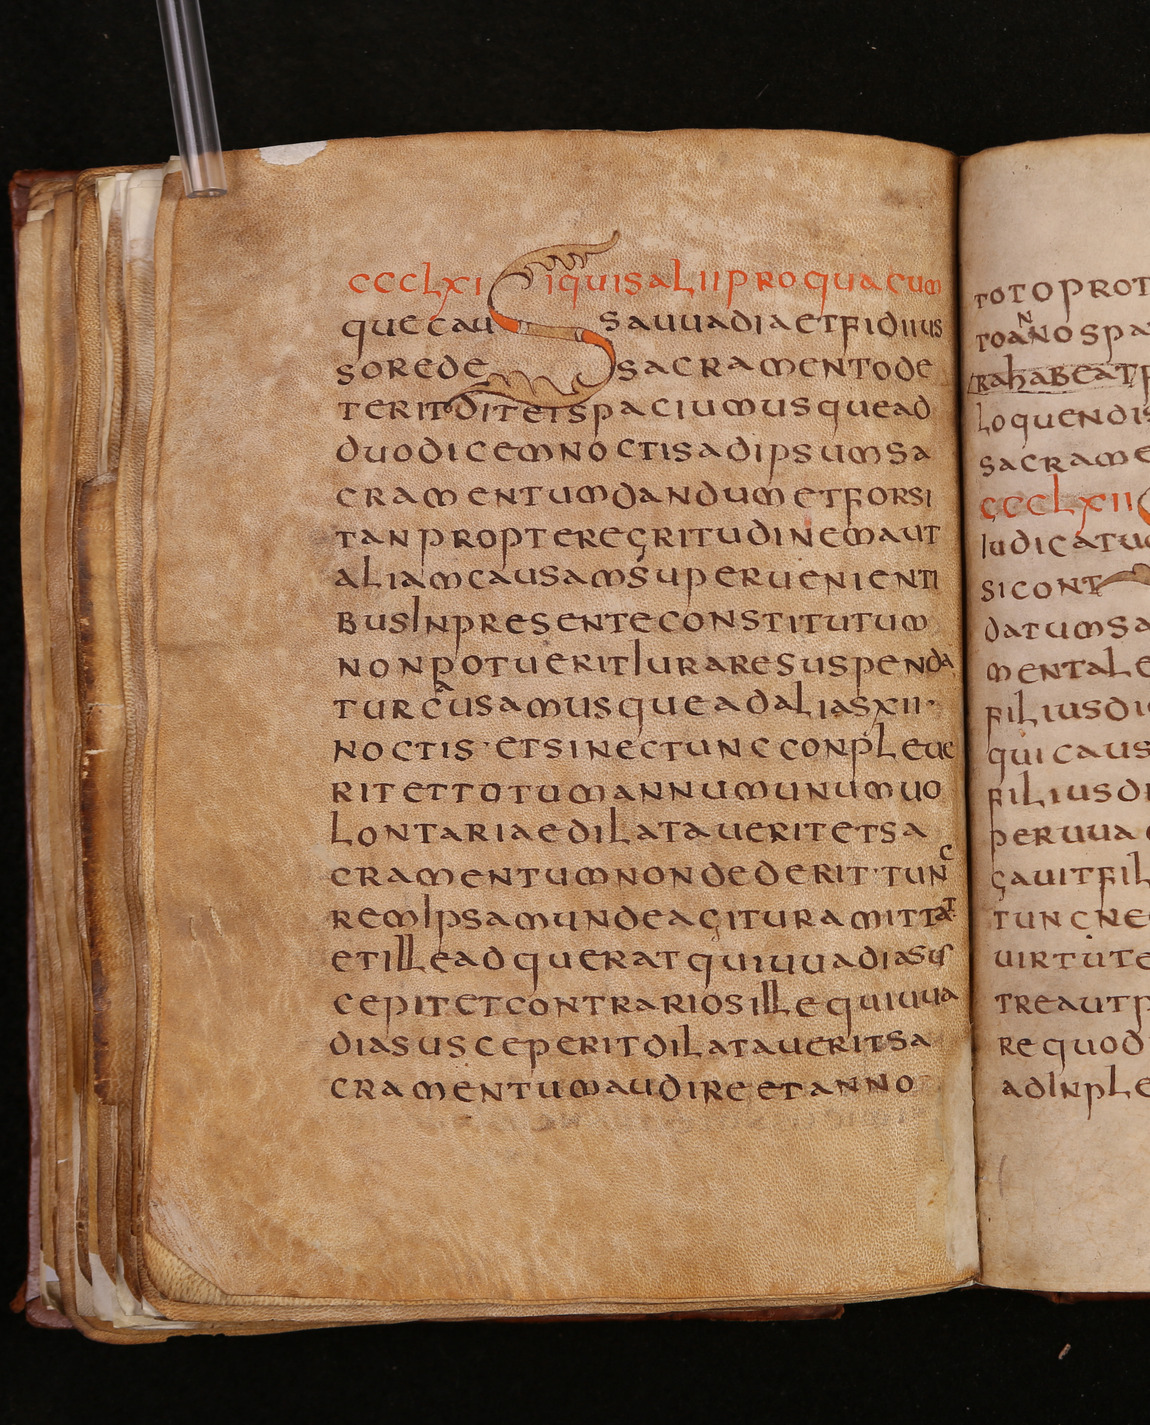 CCCLXI SIquisaliiproquacum
quecausauuadiaetfidiius
soredesacramentode
teritditeispaciumusquead
duodicemnoctisadipsumsa
cramentumdandumetforsi
tanpropteregritudinemaut
aliamcausamsuperuenienti
busInpresenteconstitutum
nonpotueritIuraresuspenda
turcausamusqueadaliasxii·
noctis·etsinectuncconpleue
ritettotumannumunumuo
lontariaedilataueritetsa
cramentumnondederit·tunc
remIpsamundeagituramittat·
etilleadqueratquiuuadiasus
cepitetcontrariosillequiuua
diasusceperitdilataueritsa
cramentumaudireetanno
totoprot
toannospa
rahabeatp
loquendis
sacrame
CCCLXII
Iudicatu
sicont
datumsa
mentale
filiusdi
quicaus
filiusdi
peruua
gauitfil
tuncne
uirtute
treautp
requod
adInple